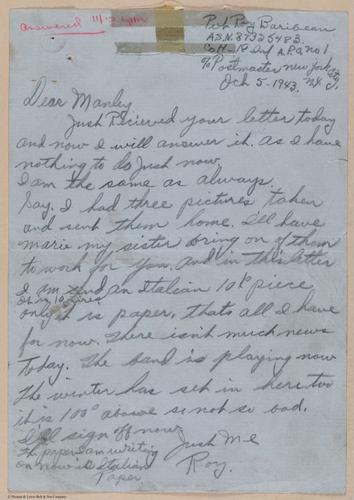 answered 11/12
Pvt Roy Baribeau
A.S.N. 37325483
Co H-18 Inf A.P.O. no 1
c/o Postmaster New York City
N.Y.
Oct 5-1943.
Dear Manley
Just Recieved your letter today
and now I will answer it. as I have
nothing to do Just now.
I am the same as always.
Say. I had three pictures taken
and sent them home. I'll have
marie my sister bring on of them
to work for you. and in this letter
I am send an Italian 10¢ piece
Oh my 10 lires
only it is paper. thats all I have
for now. There isn't much news
Today. The band is playing now
The winter has set in here too
it is 100° above so not so bad.
I'll sign off now
Just Me
Roy.
The paper I am writing
on now is Italian
Paper.